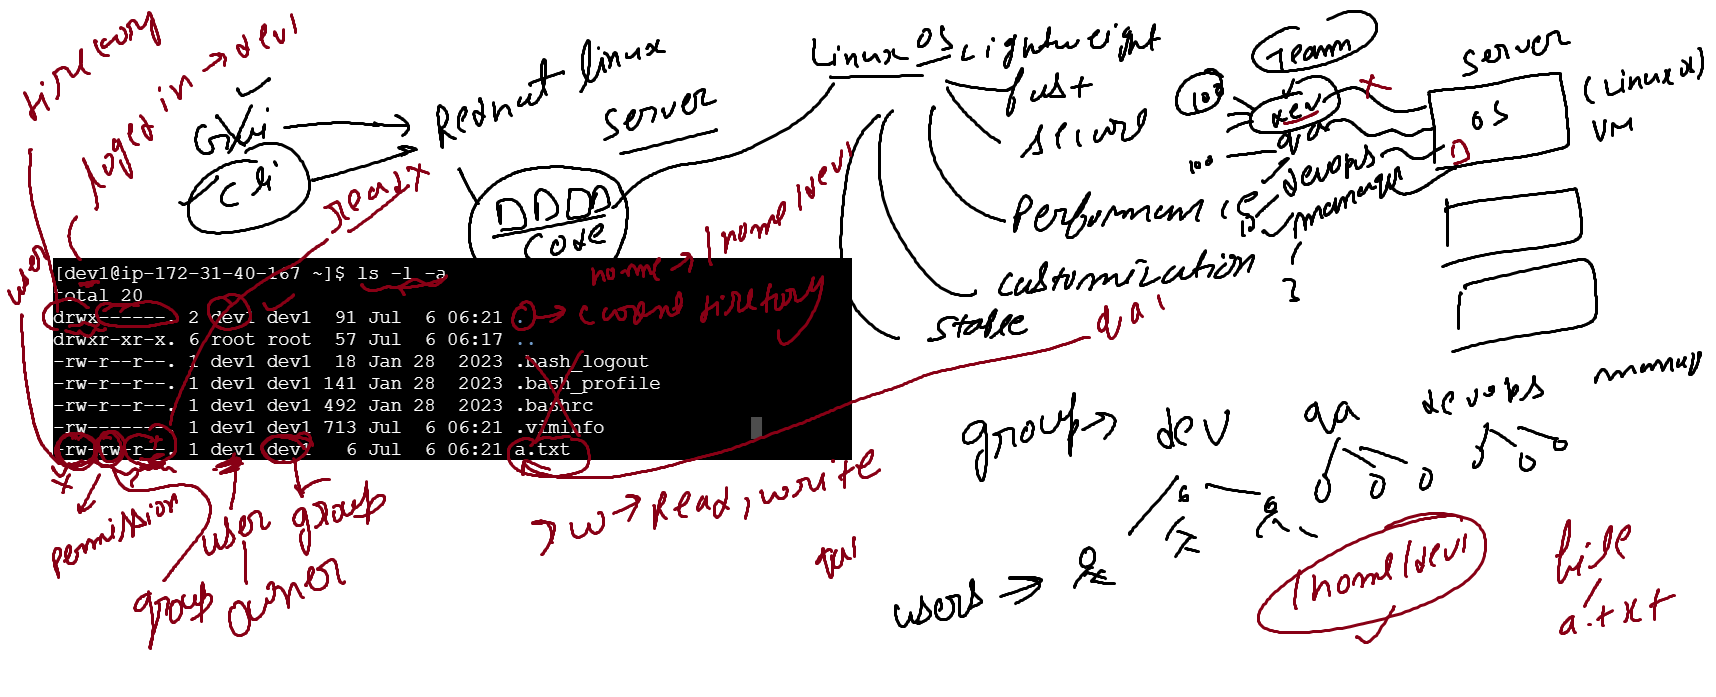 directory
loged in → dev1
Gui
cli
Rednat linux
server
D D D D
code
readx
Linux OS
Lightweight
fast
secure
Performance
customization
stable
Team
100
dev
qa
100
devops
10
manager
3
server
OS
D
(Linux
VM
user
home → /home/dev1
[dev1@ip-172-31-40-167 ~]$ ls -l -a
total 20
drwx------. 2 dev1 dev1  91 Jul  6 06:21 .
→ current directory
drwxr-xr-x. 6 root root  57 Jul  6 06:17 ..
-rw-r--r--. 1 dev1 dev1  18 Jan 28  2023 .bash_logout
-rw-r--r--. 1 dev1 dev1 141 Jan 28  2023 .bash_profile
-rw-r--r--. 1 dev1 dev1 492 Jan 28  2023 .bashrc
-rw-------. 1 dev1 dev1 713 Jul  6 06:21 .viminfo
-rw-rw-r--. 1 dev1 dev1   6 Jul  6 06:21 a.txt
qa1
permission
user
group
group
owner
w → Read, write
group → dev
qa
devops
users →
/home/dev1
file
a.txt